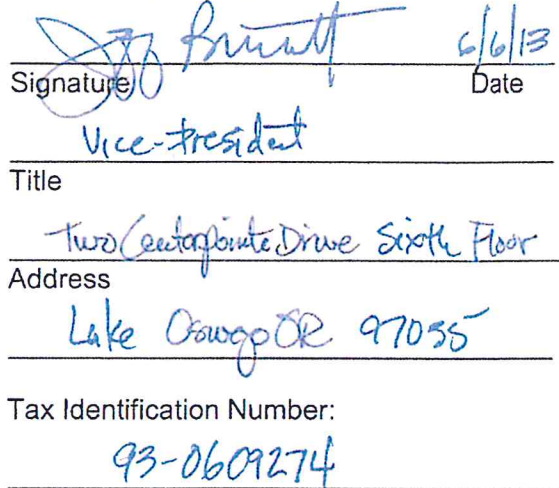 6/6/13
Signature Date
Vice-President
Title
Two Centerpointe Drive Sixth Floor
Address
Lake Oswego OR 97035
Tax Identification Number:
93-0609274